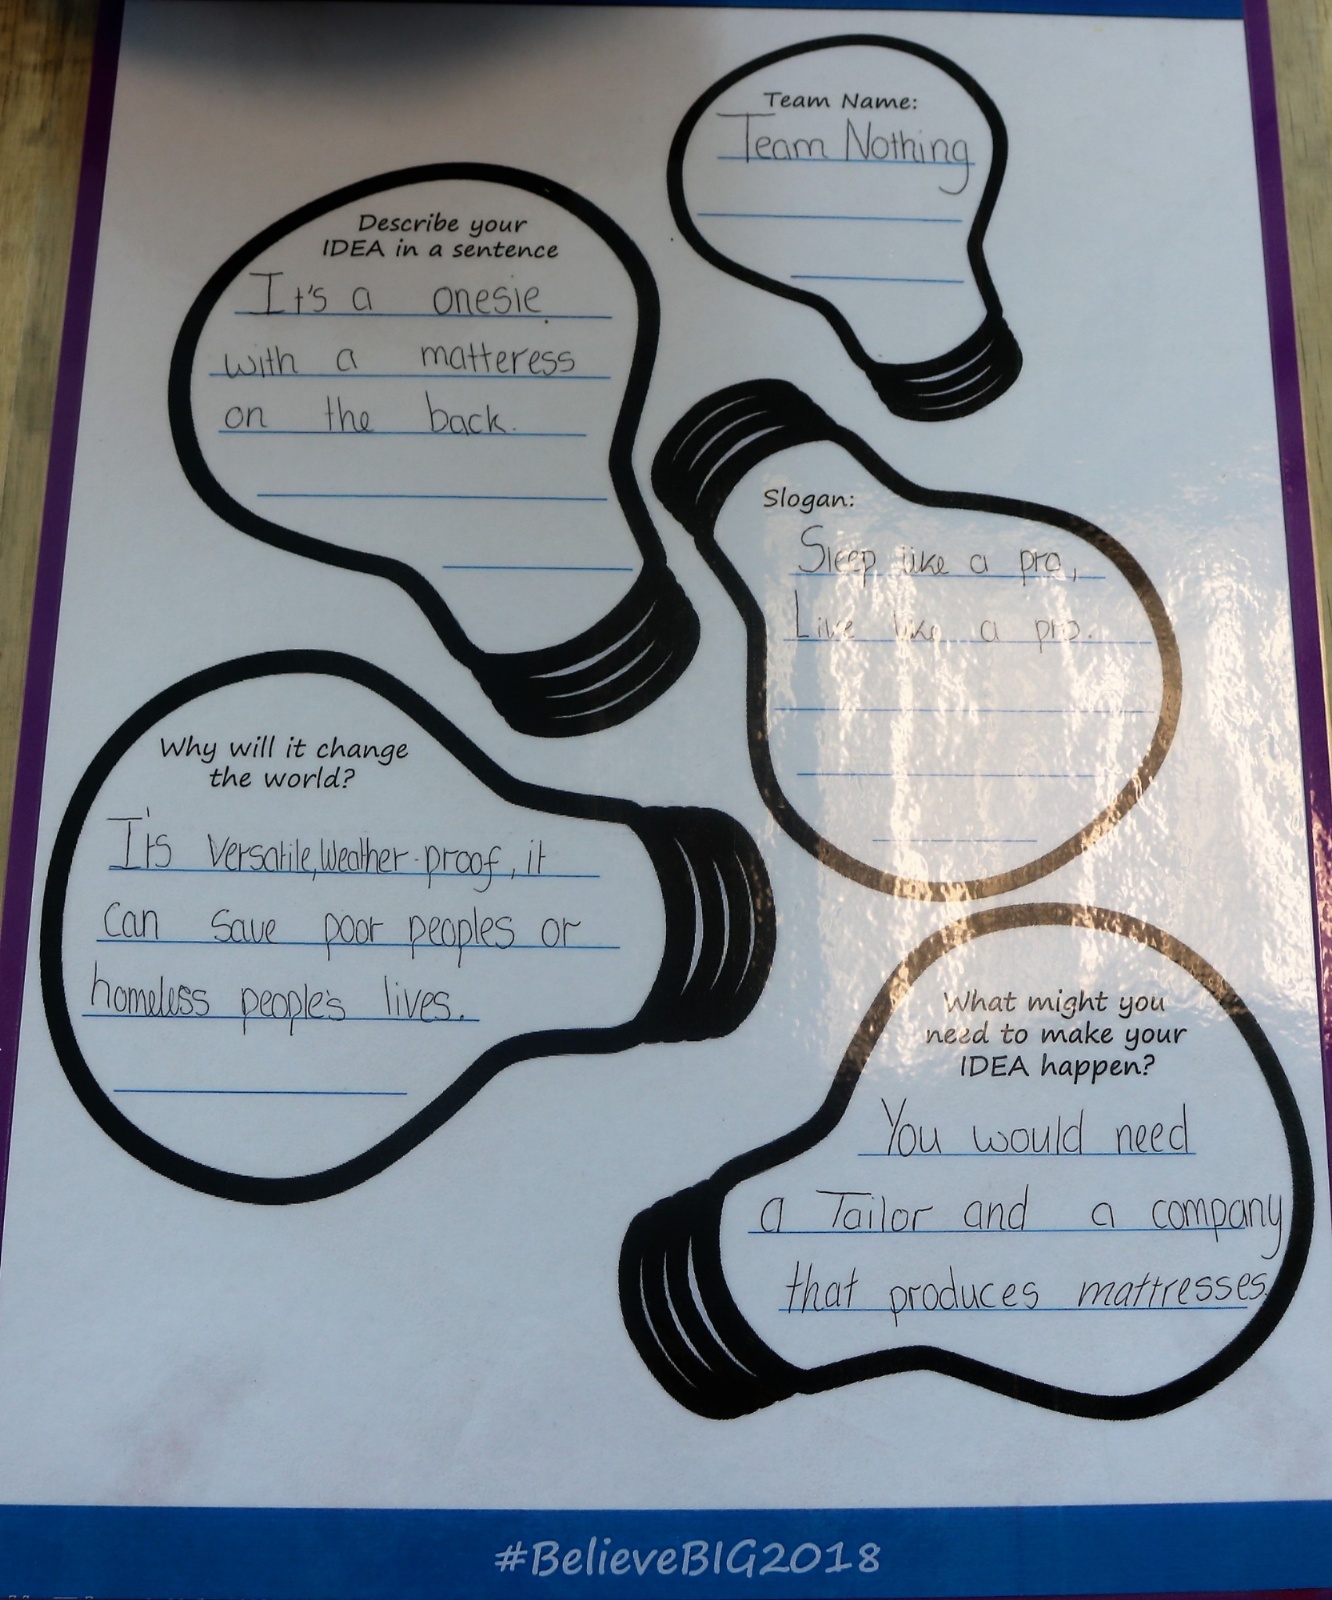 Team Name:
Team Nothing
Describe your
IDEA in a sentence
It's a onesie
with a matteress
on the back.
Slogan:
Sleep like a pro,
Live like a pro.
Why will it change
the world?
It's versatile, Weather-proof, it
can save poor peoples or
homeless people's lives.
What might you
need to make your
IDEA happen?
You would need
a Tailor and a company
that produces mattresses.
#BelieveBIG2018